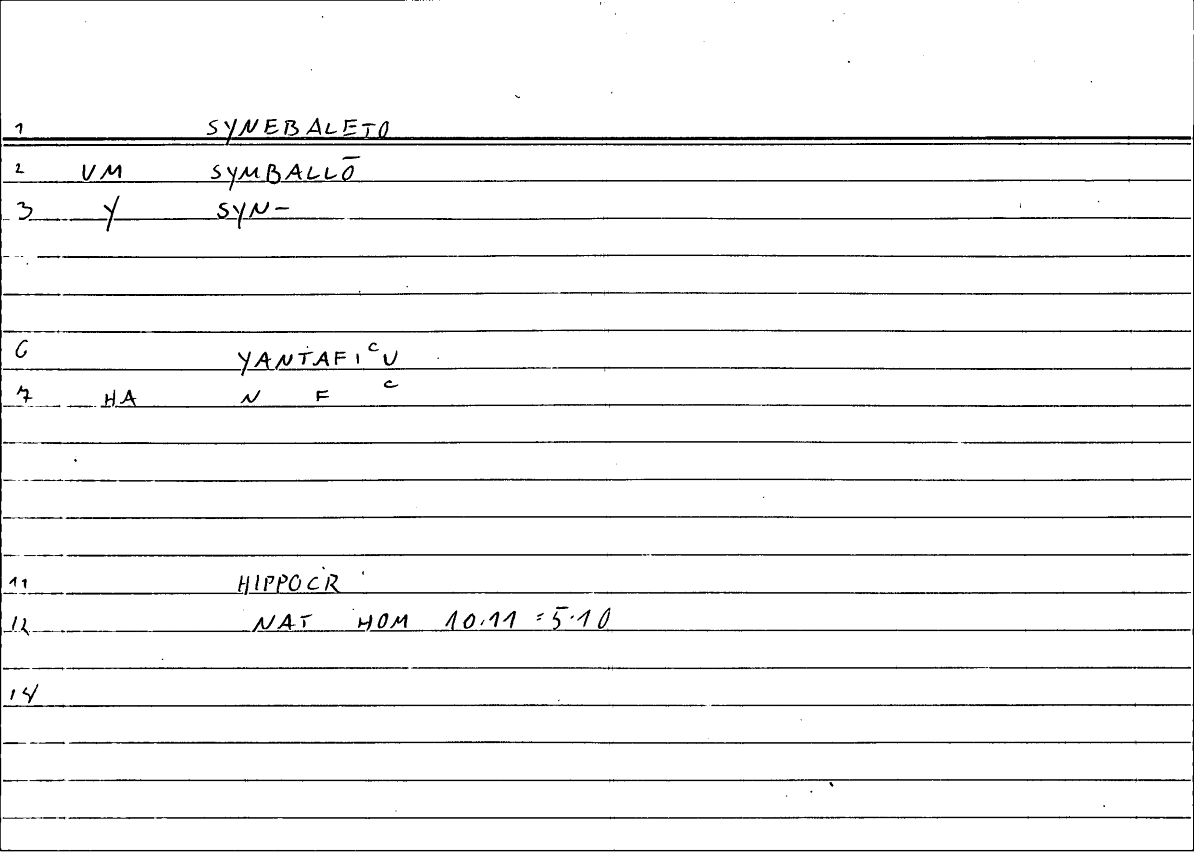 1 SYNEBALETO
2 VM SYMBALLŌ
3 Y SYN-
6 YANTAFI^C U
7 HA N F C
11 HIPPOCR
12 NAT HOM 10.11 = 5.10
14